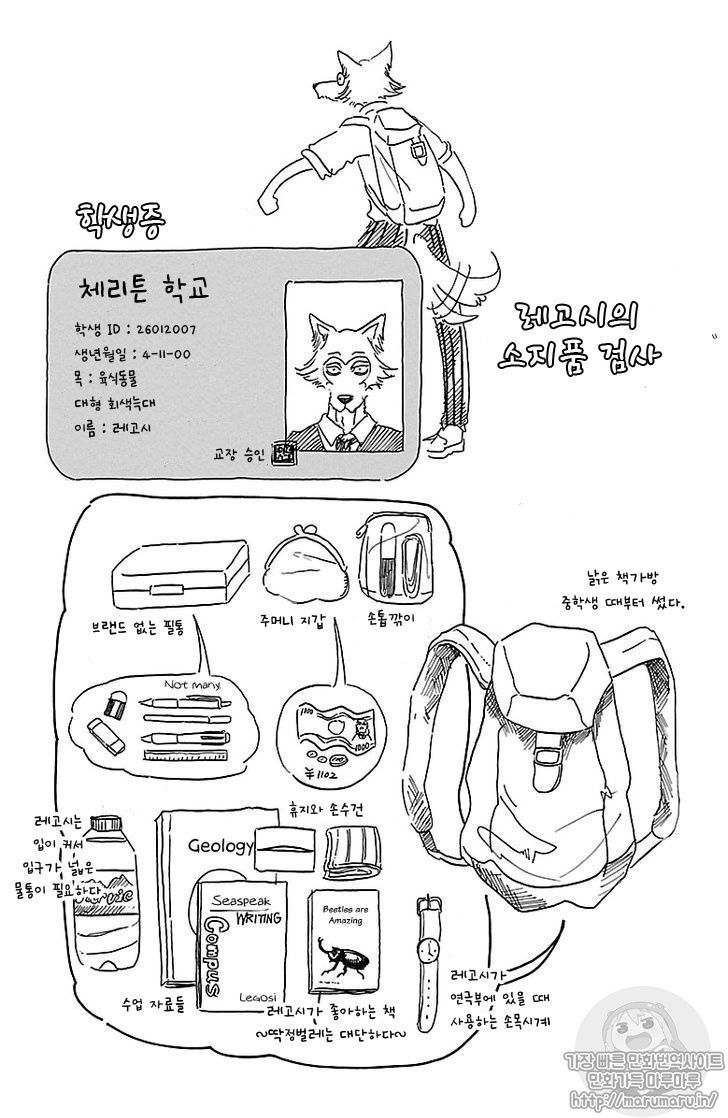 학생증
체리튼 학교
학생 ID : 26012007
생년월일 : 4-11-00
목 : 육식동물
대형 회색늑대
이름 : 레고시
교장 승인
레고시의
소지품 검사
브랜드 없는 필통
주머니 지갑
손톱깎이
낡은 책가방
중학생 때부터 썼다.
Not many
1000
1000
¥1102
휴지와 손수건
레고시는
입이 커서
입구가 넓은
물통이 필요하다
Geology
Seaspeak
WRITING
Compus
Legosi
Beetles are
Amazing
수업 자료들
레고시가 좋아하는 책
~딱정벌레는 대단하다~
레고시가
연극부에 있을 때
사용하는 손목시계
가장 빠른 만화번역사이트
만화가득 마루마루
http://marumaru.in/